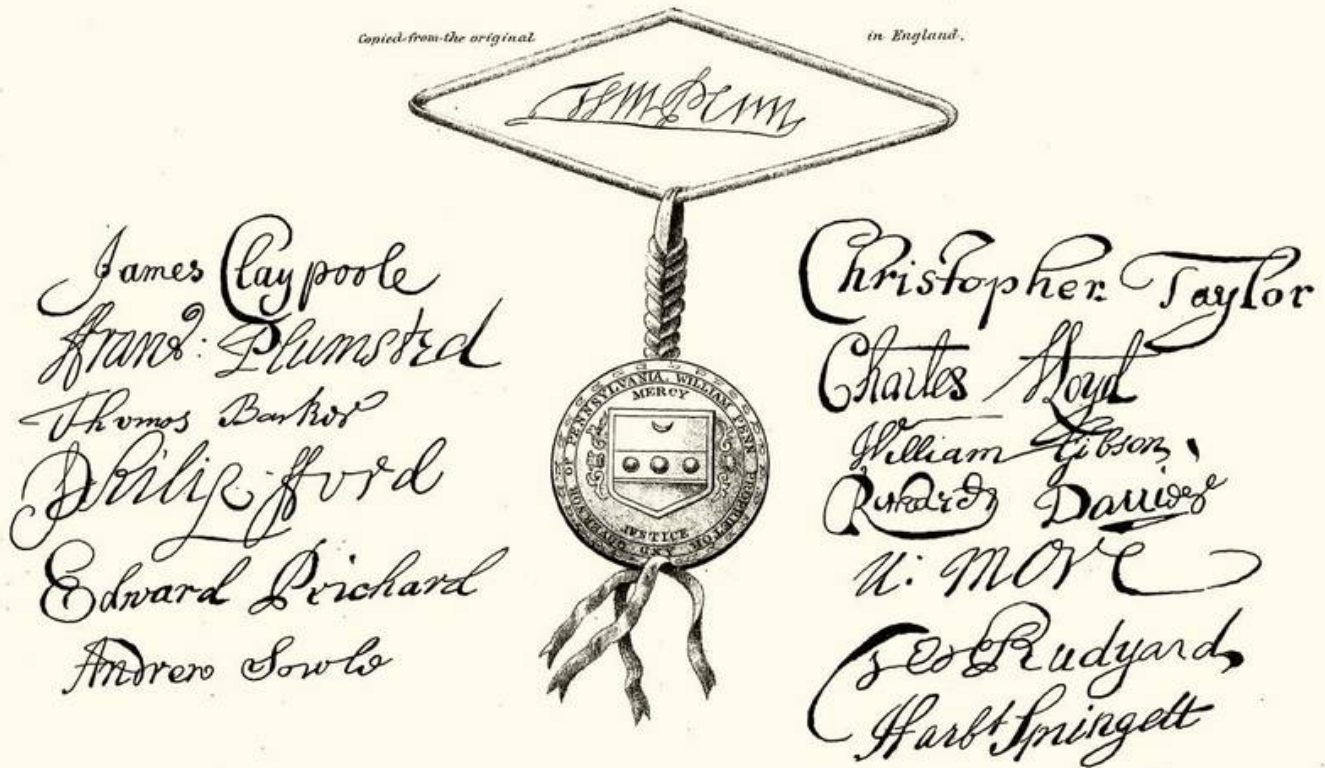 Copied from the original in England.
Wm Penn
James Claypoole
ffranc: Plumsted
Thomas Barker
Philip fford
Edward Prichard
Andrew Sowle
PENNSYLVANIA, WILLIAM PENN PROPRIETOR AND GOVERNOR OF
MERCY
JVSTICE
Christopher Taylor
Charles Lloyd
William Gibson
Davies
N: More
Geo Rudyard
Harbt Springett